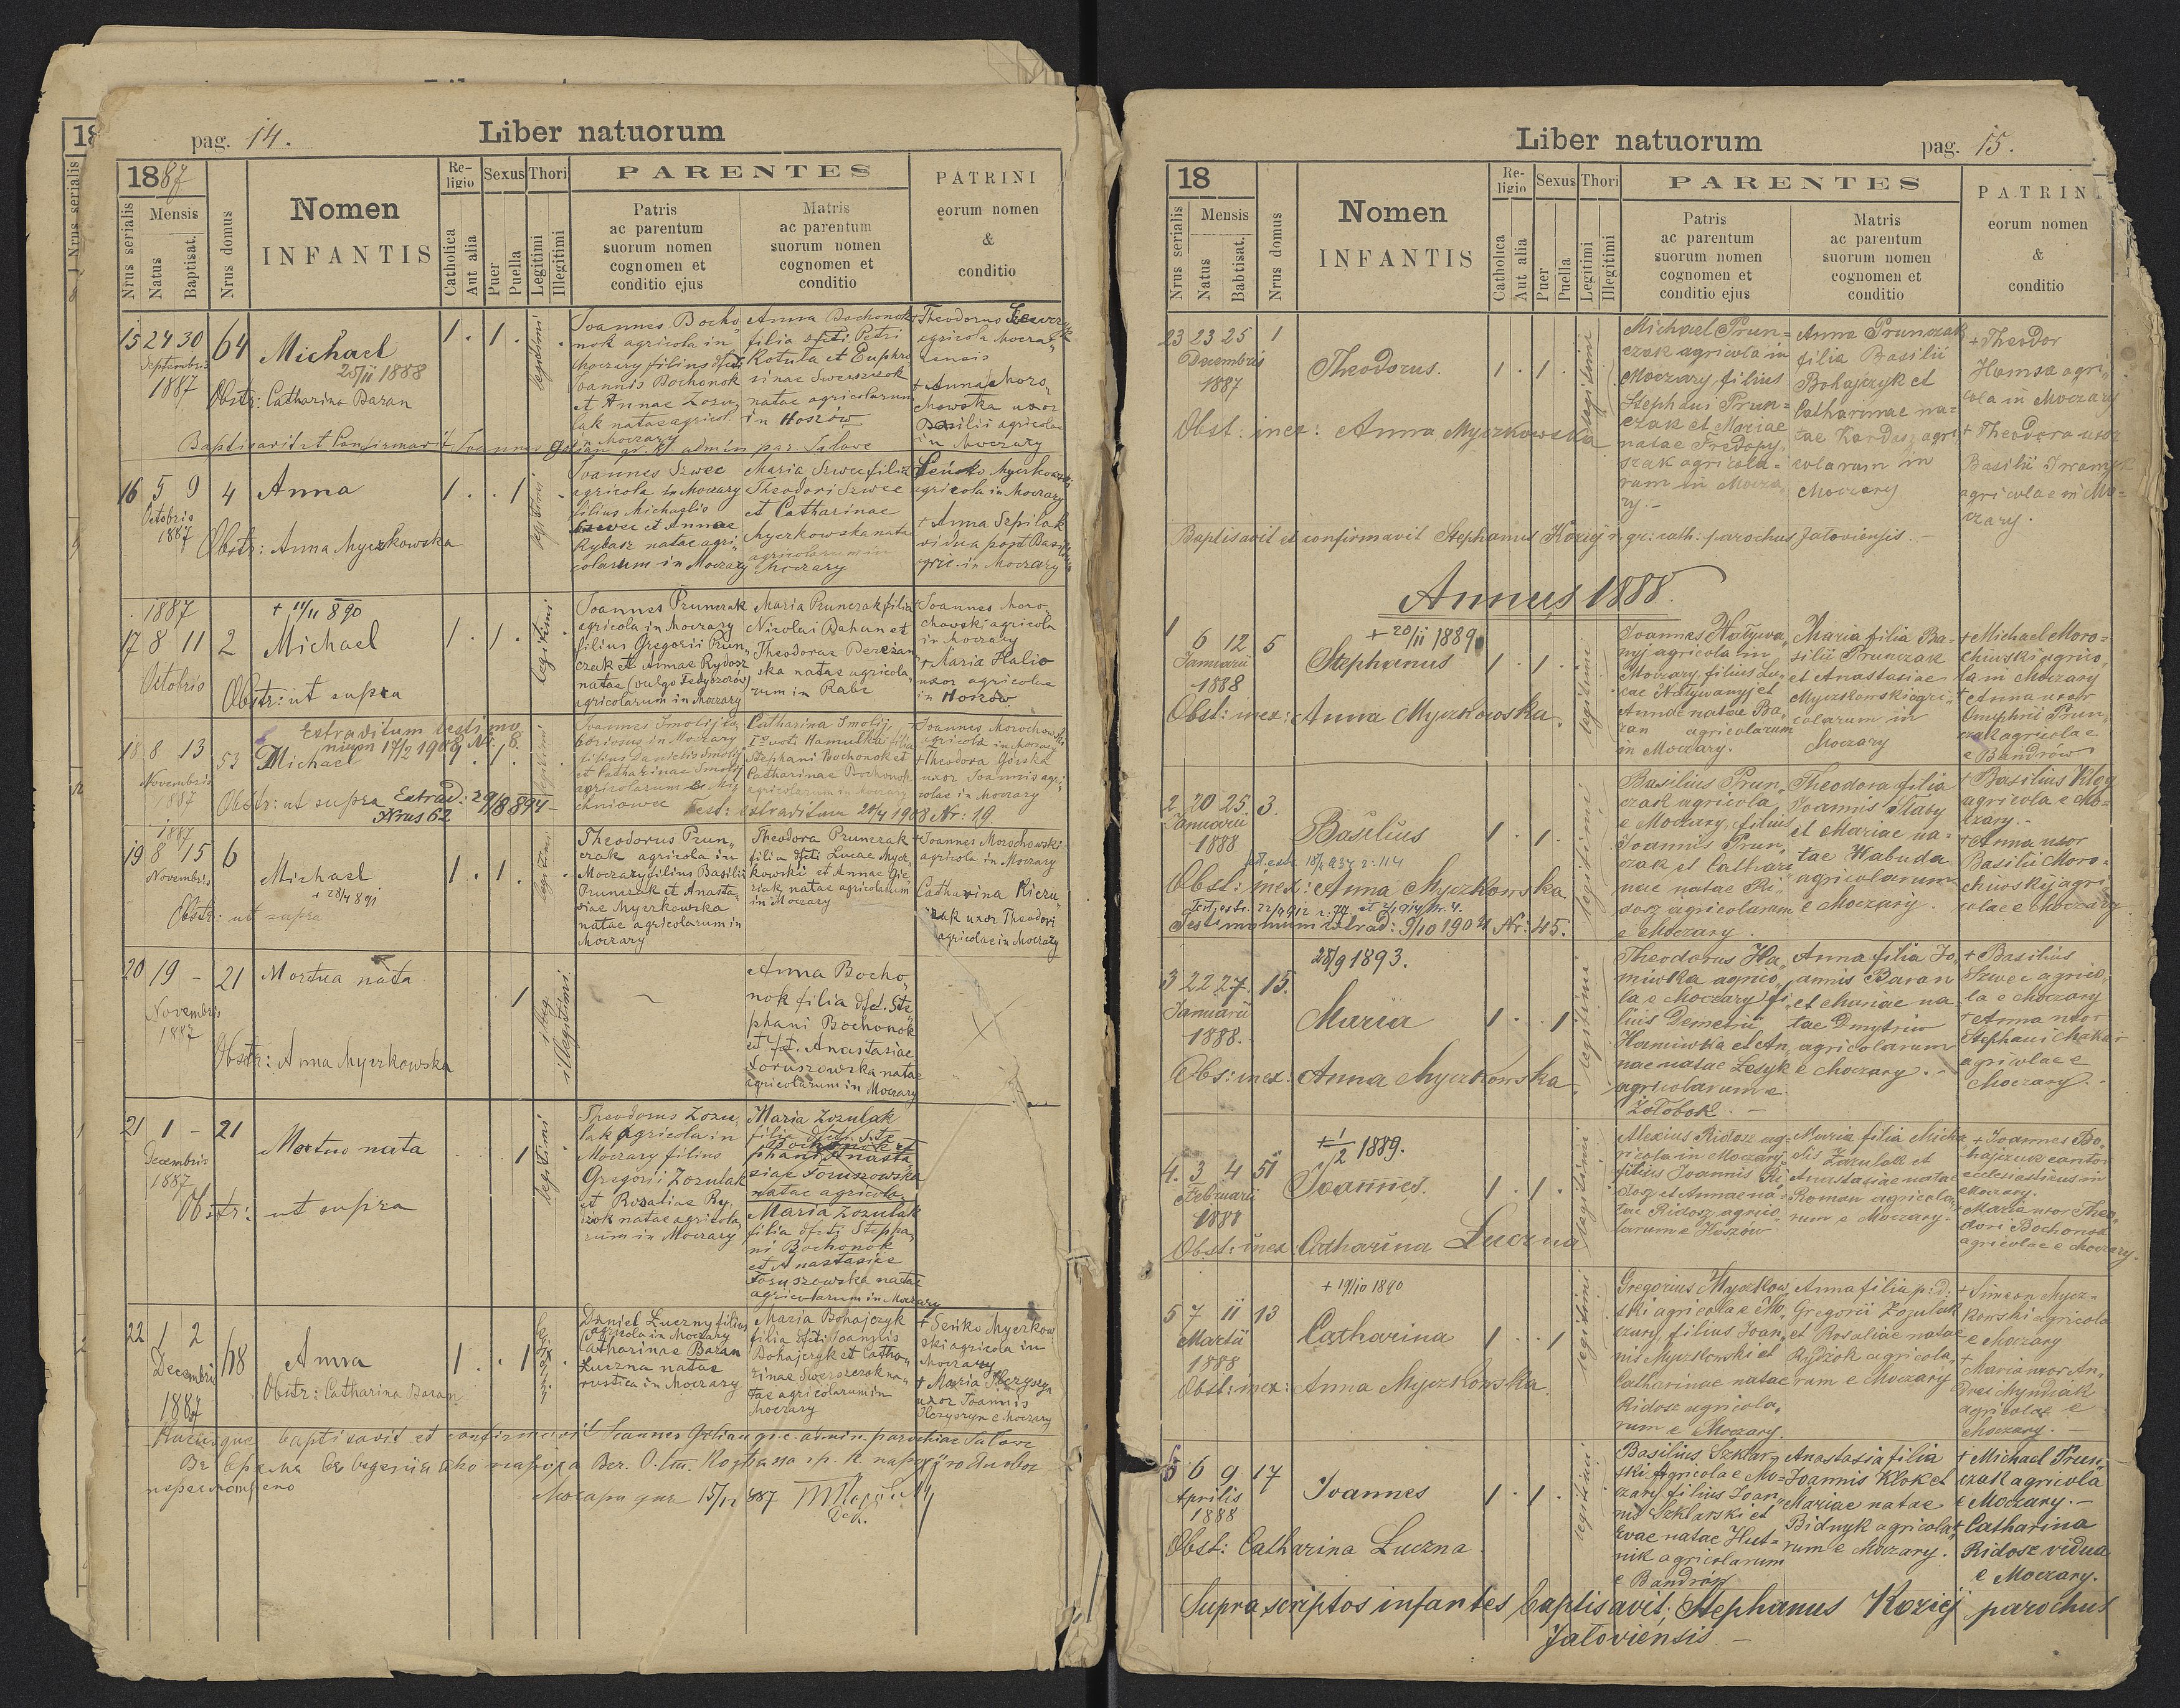 pag. 14.
Liber natuorum
1887
Nrus serialis
Mensis
Natus
Baptisat.
Nrus domus
Nomen
INFANTIS
Religio
Catholica
Aut alia
Sexus
Puer
Puella
Thori
Legitimi
Illegitimi
PARENTES
Patris
ac parentum
suorum nomen
cognomen et
conditio ejus
Matris
ac parentum
suorum nomen
cognomen et
conditio
PATRINI
eorum nomen
&
conditio
15 24 30 64 Michael
Septembris 25/ii 1888
1887
Obstr: Catharina Baran
legitimi
Joannes Bocho
nok agricola in
Moczary filius dfcti
Joannis Bochonok
et Annae Lozu
lak natae agricol.
in Moczary
Anna Bochonok
filia dfcti Petri
Kotula et Euphro
sinae Swerszczok
natae agricolarum
in Hoszów
Theodorus
agricola Moczra
nensis
+ Anna Moro
chowska uxor
Basilii agricolae
in Moczary
Baptisavit et Confirmavit Joannes Golian gr. k. admin par. Jalove
16 5 9 4 Anna
Octobris
1887
Obstr: Anna Myczkowska
legitimi
Joannes Szwec
agricola in Moczary
filius Michaelis
Szwec et Annae
Rybasz natae agri
colarum in Moczary
Maria Szwec filia
Theodori Szwec
et Catharinae
Myczkowska nata
agricolarum in
Moczary
Seńko Myczkowski
agricola in Moczary
+ Anna Szpilak
vidua post Basilium
gric. in Moczary
1887 + 11/11 890
17 8 11 2 Michael
Octobris
Obstr: ut supra
legitimi
Joannes Prunczak
agricola in Moczary
filius Gregorii Prun
czak et Annae Rydosz
natae (vulgo Fedyczorow)
agricolarum in Moczary
Maria Prunczak filia
Nicolai Bahan et
Theodorae Derezan
ska natae agricola
rum in Rabe
Joannes Moro
chowski agricola
in Moczary
+ Maria Halio
uxor agricolae
in Hoszów
Extraditum testimo
nium 17/2 1909 Nr. 8.
18 8 13 53 Michael
Novembris
1887
Obstr: ut supra Extrad: 29/8 894
Nrus 62
Joannes Smolij la
boriosus in Moczary
filius Danielis Smolij
et Catharinae Smolij
agricolarum
chniowec
Catharina Smolij
Io voti Hamulka filia
Stephani Bochonok et
Catharinae Bochonok
agricolarum in Moczary
Joannes Morochowski
agricola in Moczary
+ Theodora Górska
uxor Joannis agri
colae in Moczary
Test: extraditum 20/4 1908 Nr: 19.
1887
19 8 15 6 Michael
Novembris + 28/4 891
Obstr: ut supra
legitimi
Theodorus Prun
czak agricola in
Moczary filius Basilii
Prunczak et Anasta
siae Myczkowska
natae agricolarum in
Moczary
Theodora Prunczak
filia dfcti Lucae Mycz
kowski et Annae Gie
ziak natae agricolarum
in Moczary
Joannes Morochowski
agricola in Moczary
Catharina Kiczu
rak uxor Theodori
agricolae in Moczary
20 19 - 21 Mortua nata
Novembris
1887
Obstr: Anna Myczkowska
illegitimi
Anna Bocho
nok filia dfct. Ste
phani Bochonok
et fct. Anastasiae
Foruszowska natae
agricolarum in Moczary
21 1 - 21 Mortuo nata
Decembris
1887
Obstr: ut supra
legitimi
Theodorus Zozu
lak agricola in
Moczary filius
Gregorii Zozulak
et Rosaliae Ry
dzok natae agricola
rum in Moczary
Maria Zozulak
filia dfcti Ste
Bochonok et
phani Anasta
siae Foruszowska
natae agricola
Maria Zozulak
filia dfcti Stepha
ni Bochonok
et Anastasiae
Foruszowska natae
agricolarum in Moczary
22 1 2 18 Anna
Decembris
1887
Obstr: Catharina Baran
legitimi
Daniel Łuczny filius
agricola in Moczary
Catharinae Baran
Łuczna natae
rustica in Moczary
Maria Bohajczyk
filia dfcti Joannis
Bohajczyk et Catha
rinae Swerszczok na
tae agricolarum in
Moczary
+ Seńko Myczkow
ski agricola in
Moczary
+ Maria
uxor Joannis
e Moczary
Hucusque baptisavit et confirmavit Joannes Golian gr. c. admin. parochiae Jalove
15/12 887
Liber natuorum
pag. 15.
18
Nrus serialis
Mensis
Natus
Babtisat.
Nrus domus
Nomen
INFANTIS
Religio
Catholica
Aut alia
Sexus
Puer
Puella
Thori
Legitimi
Illegitimi
PARENTES
Patris
ac parentum
suorum nomen
cognomen et
conditio ejus
Matris
ac parentum
suorum nomen
cognomen et
conditio
PATRINI
eorum nomen
&
conditio
23 23 25 1 Theodorus.
Decembris
1887
Obst: inex: Anna Myczkowska
legitimi
Michael Prun=
czak agricola in
Moczary, filius
Stephani Prun=
czak et Mariae
natae Fredory
szak agricola=
rum in Mocza
ry.-
Anna Prunczak
filia Basilii
Bohajczyk et
Catharinae na=
tae Kardasz agri
colarum in
Moczary
+ Theodor
Hamsa agri
cola in Moczary
+ Theodora uxor
Basilii Iwanyk
agricolae in Mo=
czary.
Baptisavit et confirmavit Stephanus Koziej gr: cath: parochus Jaloviensis.-
Annus 1888.
+ 20/ii 1889
1 6 12 5 Stephanus
Januarii
1888
Obst: inex: Anna Myczkowska.
legitimi
Joannes Hatywa
nyj agricola in
Moczary, filius Lu
cae Hatywanyj et
Annae natae Ba
ran agricolarum
in Moczary.
Maria filia Ba=
silii Prunczak
et Anastasiae
Myczkowski agri
colarum in
Moczary
+ Michael Moro=
chiwski agrico
la in Moczary
+ Anna uxor
Onuphrii Prun
czak agricolae
e Bandrów
2 20 25 3. Basilius
Januarii
1888
Obst: inex: Anna Myczkowska
Testimonium extrad: 9/10 1904 Nr: 45.
legitimi
Basilius Prun
czak agricola
e Moczary, filius
Joannis Prun
czak et Cathari
nae natae Ri
dosz agricolarum
e Moczary.
Theodora filia
Joannis Słaby
et Mariae na=
tae Habuda
agricolarum
e Moczary.
+ Basilius Kłog
agricola e Mo=
czary.-
+ Anna uxor
Basilii Moro=
chiwskyj agri
colae e Moczary
28/9 1893.
3 22 27. 15. Maria
Januarii
1888.
Obs: inex: Anna Myczkowska
legitimi
Theodorus Ha
miwka agrico
la e Moczary, fi
lius Demetrii
Hamiwka et An
nae natae Lesyk
agricolarum e
Żołobok.-
Anna filia Jo
annis Baran
et Mariae na
tae Dmytriw
agricolarum
e Moczary.-
+ Basilius
Szwec agrico
la e Moczary
+ Anna uxor
Stephani Makar
agricolae e
Moczary.-
+ 1/2 1889.
4. 3 4 51 Joannes.
Februarii
1888
Obst: inex: Catharina Łuczna
legitimi
Alexius Ridosz ag=
ricola in Moczary
filius Joannis Ri
dosz et Annae na=
tae Ridosz agrico
larum e Hoszów
Maria filia Micha
elis Zozulak et
Anastasiae natae
Roman agricola
rum e Moczary.
+ Joannes Bo
hajczuk cantor
ecclesiasticus in
Moczary.
+ Maria uxor Theo
dori Bochonok
agricolae e Moczary.
+ 19/10 1890
5 7 11 13 Catharina
Martii
1888
Obst: inex: Anna Myczkowska.
legitimi
Gregorius Myczkow
ski agricola e Mo
czary, filius Joan
nis Myczkowski et
Catharinae natae
Ridosz agricola
rum e Moczary.
Anna filia p:d:
Gregorii Zozulak
et Rosaliae natae
Rydżok agricola
rum e Moczary
+ Simeon Mycz=
kowski agricola
e Moczary
+ Maria uxor An
drei Myndiak
agricolae e
Moczary.-
6 6 9 17 Joannes
Aprilis
1888
Obst: Catharina Łuczna
legitimi
Basilius Szklar
ski Agricola e Mo=
czary, filius Joan
nis Szklarski et
Evae natae Hut=
nik agricolarum
e Bandrów
Anastasia filia
Joannis Klok et
Mariae natae
Bidnyk agricola
rum e Moczary.
+ Michael Prun
czak agricola
e Moczary.-
+ Catharina
Ridosz vidua
e Moczary.
Supra scriptos infantes baptisavit; Stephanus Koziej parochus
Jaloviensis.-